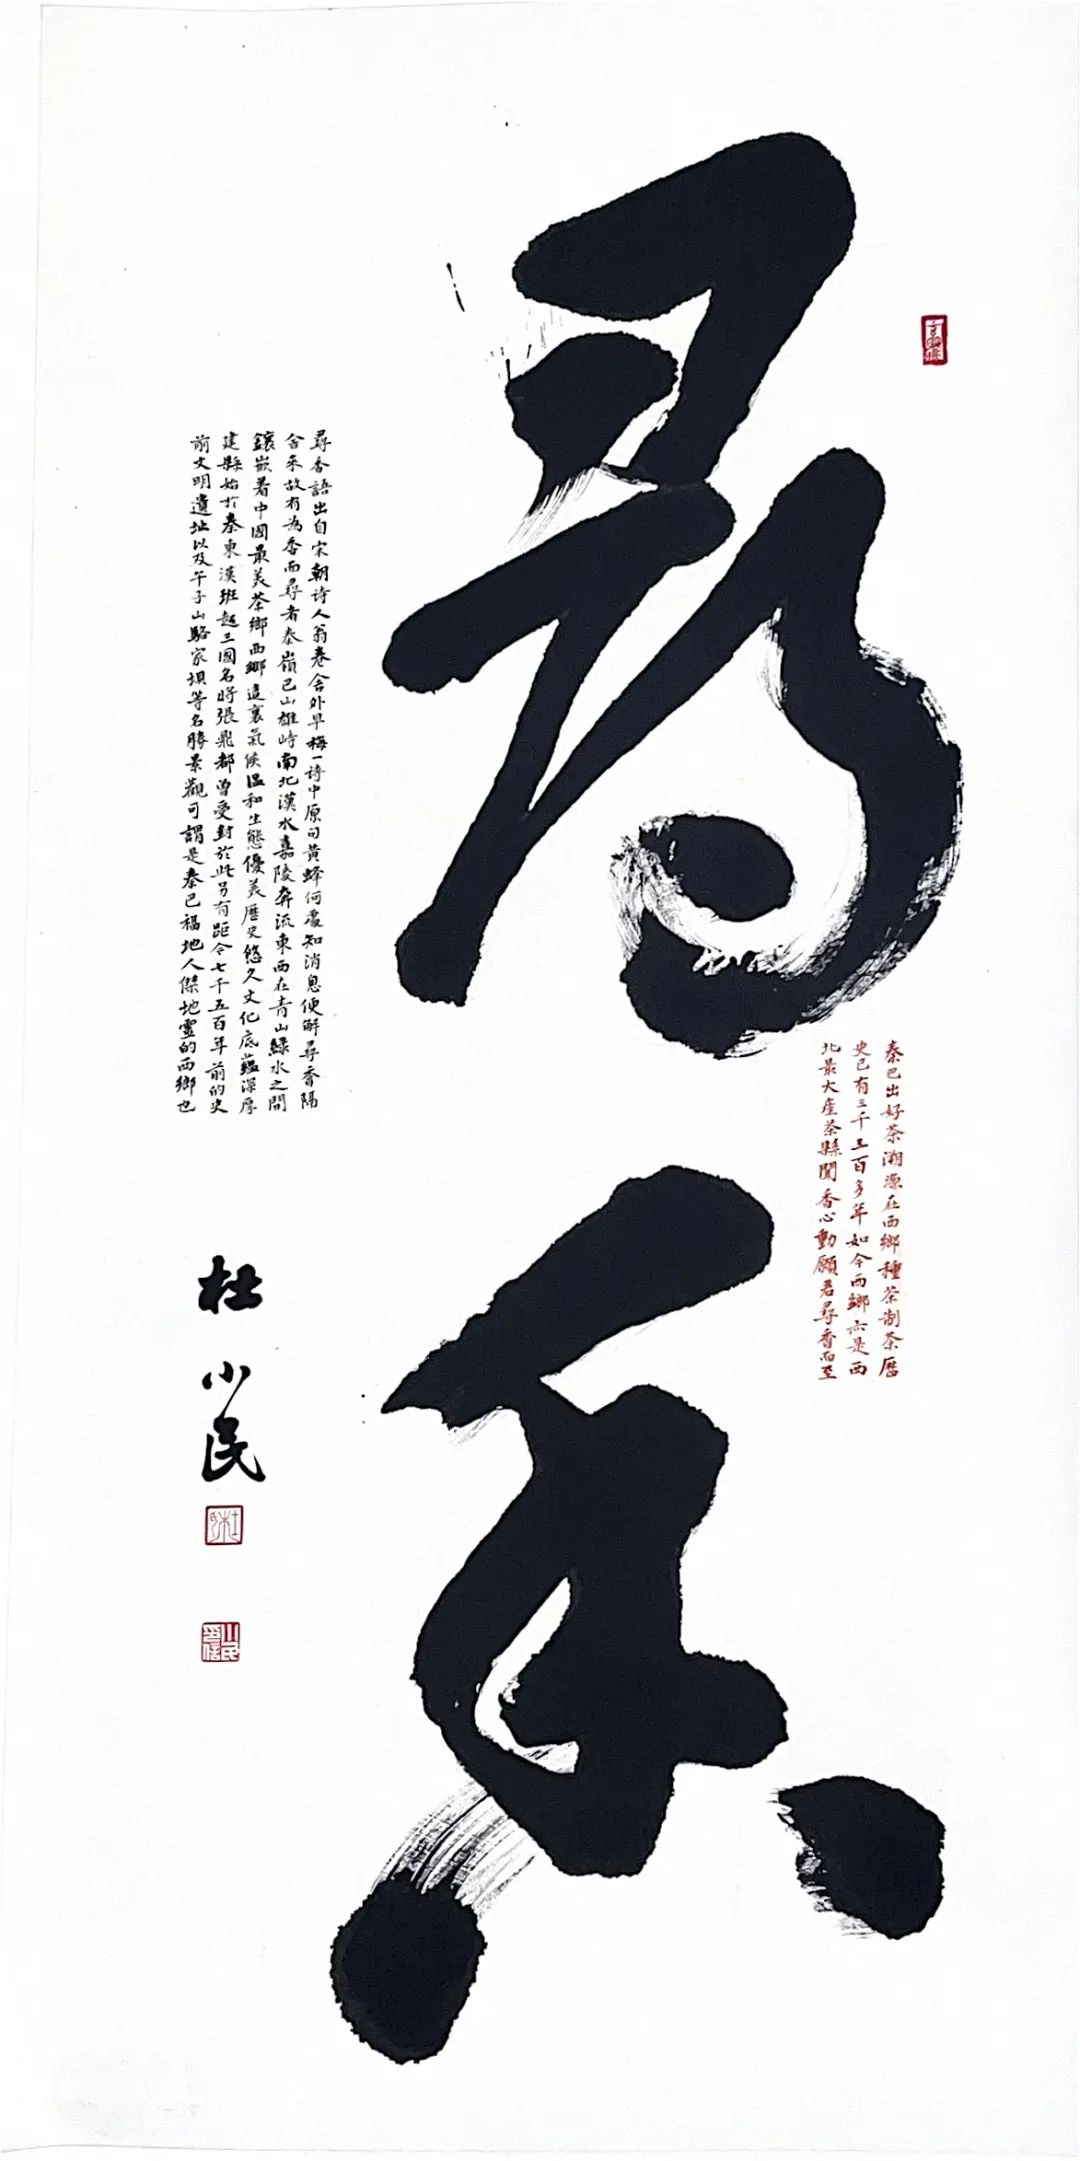 尋香
秦巴出好茶溯源在西鄉種茶制茶歷
史已有三千三百多年如今西鄉亦是西
北最大產茶縣聞香心動願君尋香而至
尋香語出自宋朝诗人翁卷舍外早梅一诗中原句黄蜂何處知消息便解尋香隔
舍來故有為香而尋者秦嶺巴山雄峙南北漢水嘉陵奔流東西在青山綠水之間
鑲嵌著中國最美茶鄉西鄉這裏氣候溫和生態優美歷史悠久文化底蘊深厚
建縣始於秦東漢班超三國名將張飛都曾受封於此另有距今七千五百年前的史
前文明遺址以及午子山駱家坝等名勝景觀可謂是秦巴福地人傑地靈的西鄉也
杜小民